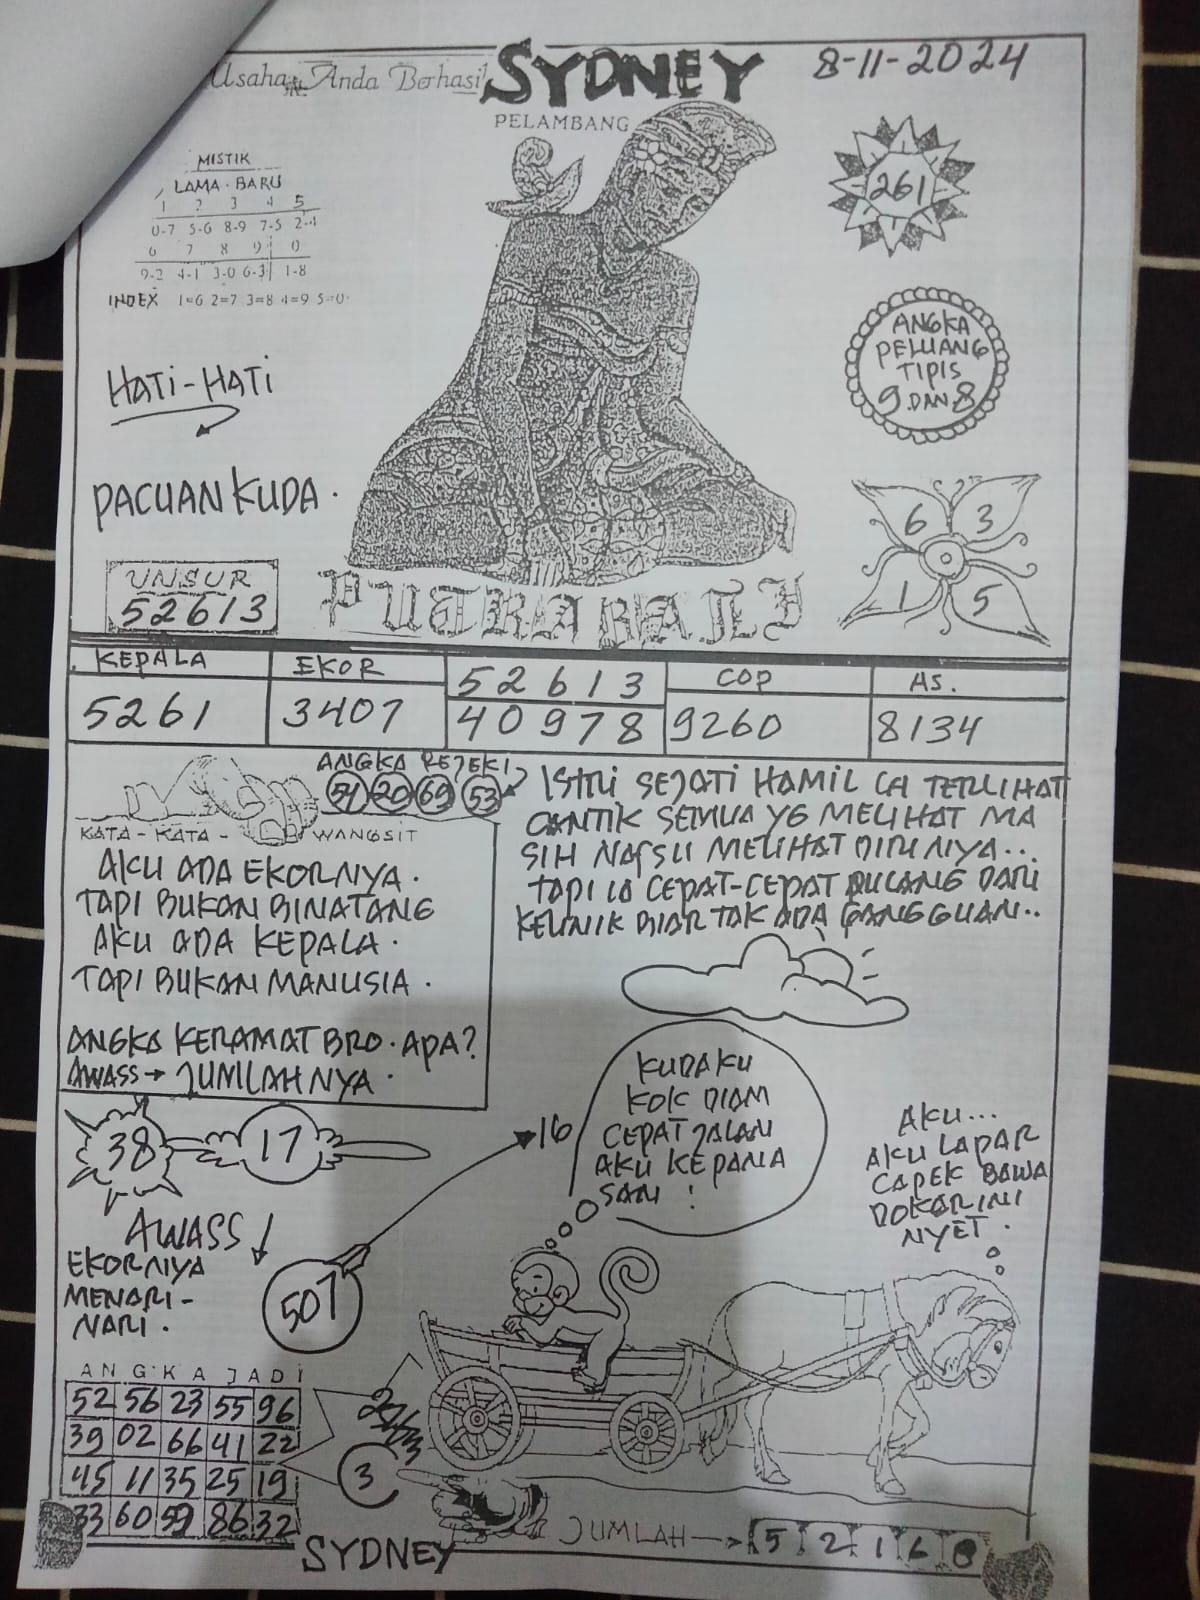 Usaha Anda Berhasil
SYDNEY
8-11-2024
PELAMBANG
MISTIK
LAMA · BARU
1 2 3 4 5
0-7 5-6 8-9 7-5 2-4
6 7 8 9 0
9-2 4-1 3-0 6-3 1-8
INDEX 1=6 2=7 3=8 4=9 5=0
261
ANGKA
PELUANG
TIPIS
9 DAN 8
HATI-HATI
PACUAN KUDA.
6 3
1 5
UNSUR
52613
PUTRA BALI
KEPALA EKOR 52613 COP AS.
5261 3407 40978 9260 8134
ANGKA REJEKI
51 20 69 53
KATA-KATA- WANGSIT
AKU ADA EKORNYA.
TAPI BUKAN BINATANG
AKU ADA KEPALA.
TAPI BUKAN MANUSIA.
ANGKA KERAMAT BRO. APA?
AWASS→ JUMLAHNYA.
ISTRI SEJATI HAMIL TERLIHAT
CANTIK SEMUA YG MELIHAT MA
SIH NAFSU MELIHAT DIRINYA..
TAPI CEPAT-CEPAT PULANG DARI
KELINIK BIAR TAK ADA GANGGUAN..
38 17
16
KUDAKU
KOK DIAM
CEPAT JALAN
AKU KEPANA
SAN !
AKU...
AKU LAPAR
CAPEK BAWA
DOKAR INI
NYET.
AWASS
EKORNYA
MENARI-
NARI.
507
ANGKA JADI
52 56 23 55 96
39 02 66 41 22
45 11 35 25 19
33 60 59 86 32
3
JUMLAH→ 5 2 1 6
SYDNEY